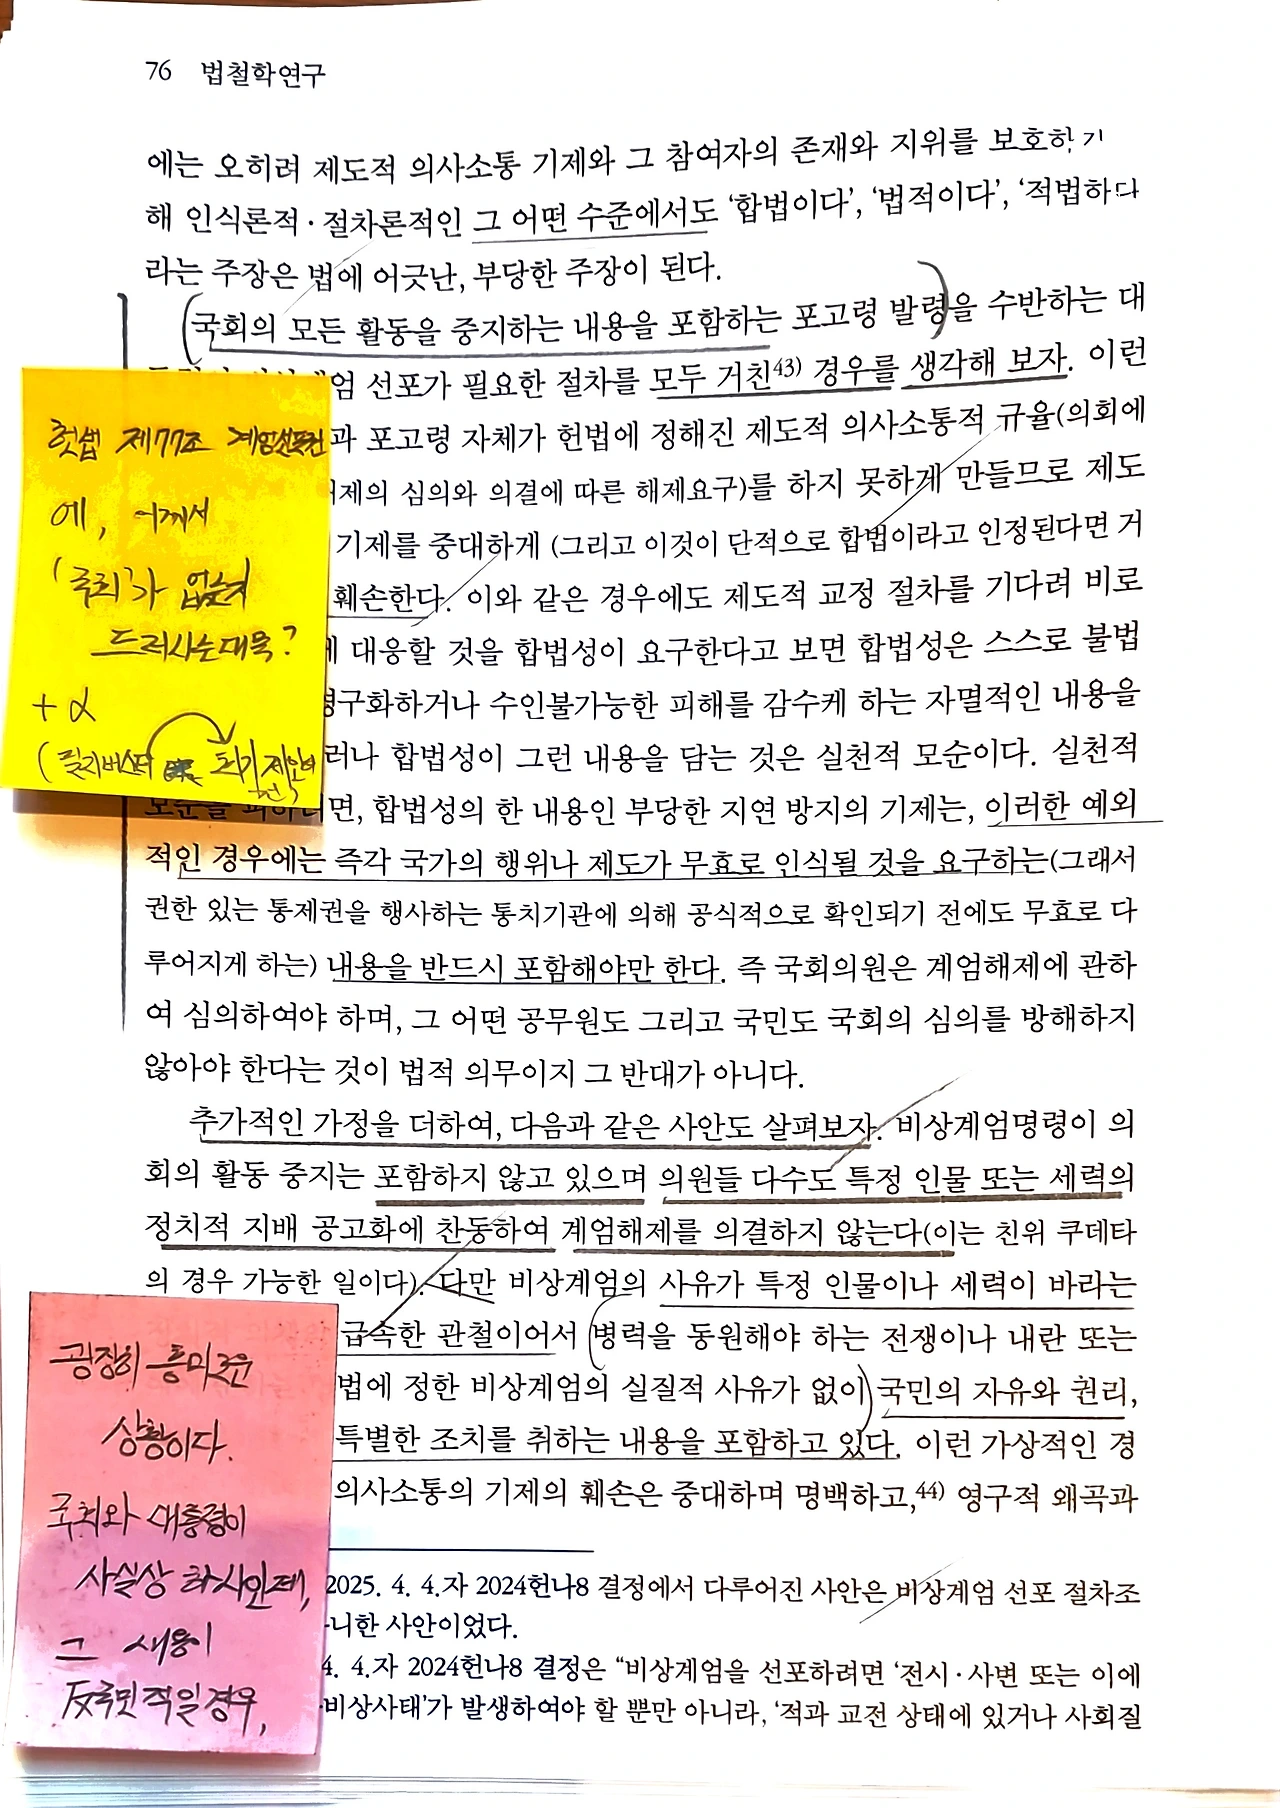 76 법철학연구
에는 오히려 제도적 의사소통 기제와 그 참여자의 존재와 지위를 보호하기
해 인식론적·절차론적인 그 어떤 수준에서도 ‘합법이다’, ‘법적이다’, ‘적법하다
라는 주장은 법에 어긋난, 부당한 주장이 된다.
국회의 모든 활동을 중지하는 내용을 포함하는 포고령 발령을 수반하는 대
엄 선포가 필요한 절차를 모두 거친43) 경우를 생각해 보자. 이런
과 포고령 자체가 헌법에 정해진 제도적 의사소통적 규율(의회에
제의 심의와 의결에 따른 해제요구)를 하지 못하게 만들므로 제도
기제를 중대하게 (그리고 이것이 단적으로 합법이라고 인정된다면 거
훼손한다. 이와 같은 경우에도 제도적 교정 절차를 기다려 비로
대응할 것을 합법성이 요구한다고 보면 합법성은 스스로 불법
구화하거나 수인불가능한 피해를 감수케 하는 자멸적인 내용을
러나 합법성이 그런 내용을 담는 것은 실천적 모순이다. 실천적
모순을 피하려면, 합법성의 한 내용인 부당한 지연 방지의 기제는, 이러한 예외
적인 경우에는 즉각 국가의 행위나 제도가 무효로 인식될 것을 요구하는(그래서
권한 있는 통제권을 행사하는 통치기관에 의해 공식적으로 확인되기 전에도 무효로 다
루어지게 하는) 내용을 반드시 포함해야만 한다. 즉 국회의원은 계엄해제에 관하
여 심의하여야 하며, 그 어떤 공무원도 그리고 국민도 국회의 심의를 방해하지
않아야 한다는 것이 법적 의무이지 그 반대가 아니다.
추가적인 가정을 더하여, 다음과 같은 사안도 살펴보자. 비상계엄명령이 의
회의 활동 중지는 포함하지 않고 있으며 의원들 다수도 특정 인물 또는 세력의
정치적 지배 공고화에 찬동하여 계엄해제를 의결하지 않는다(이는 친위 쿠데타
의 경우 가능한 일이다). 다만 비상계엄의 사유가 특정 인물이나 세력이 바라는
급속한 관철이어서 병력을 동원해야 하는 전쟁이나 내란 또는
법에 정한 비상계엄의 실질적 사유가 없이 국민의 자유와 권리,
특별한 조치를 취하는 내용을 포함하고 있다. 이런 가상적인 경
의사소통의 기제의 훼손은 중대하며 명백하고,44) 영구적 왜곡과
2025. 4. 4.자 2024헌나8 결정에서 다루어진 사안은 비상계엄 선포 절차조
니한 사안이었다.
4. 4.자 2024헌나8 결정은 “비상계엄을 선포하려면 ‘전시·사변 또는 이에
비상사태’가 발생하여야 할 뿐만 아니라, ‘적과 교전 상태에 있거나 사회질
헌법 제77조 계엄선포건
에, 어째서
‘국회’가 없는지
드러나는 대목?
+ α
(필리버스터
굉장히 흥미로운
상황이다.
국회와 대통령이
사실상 하나인데,
그 내용이
反국민적일 경우,